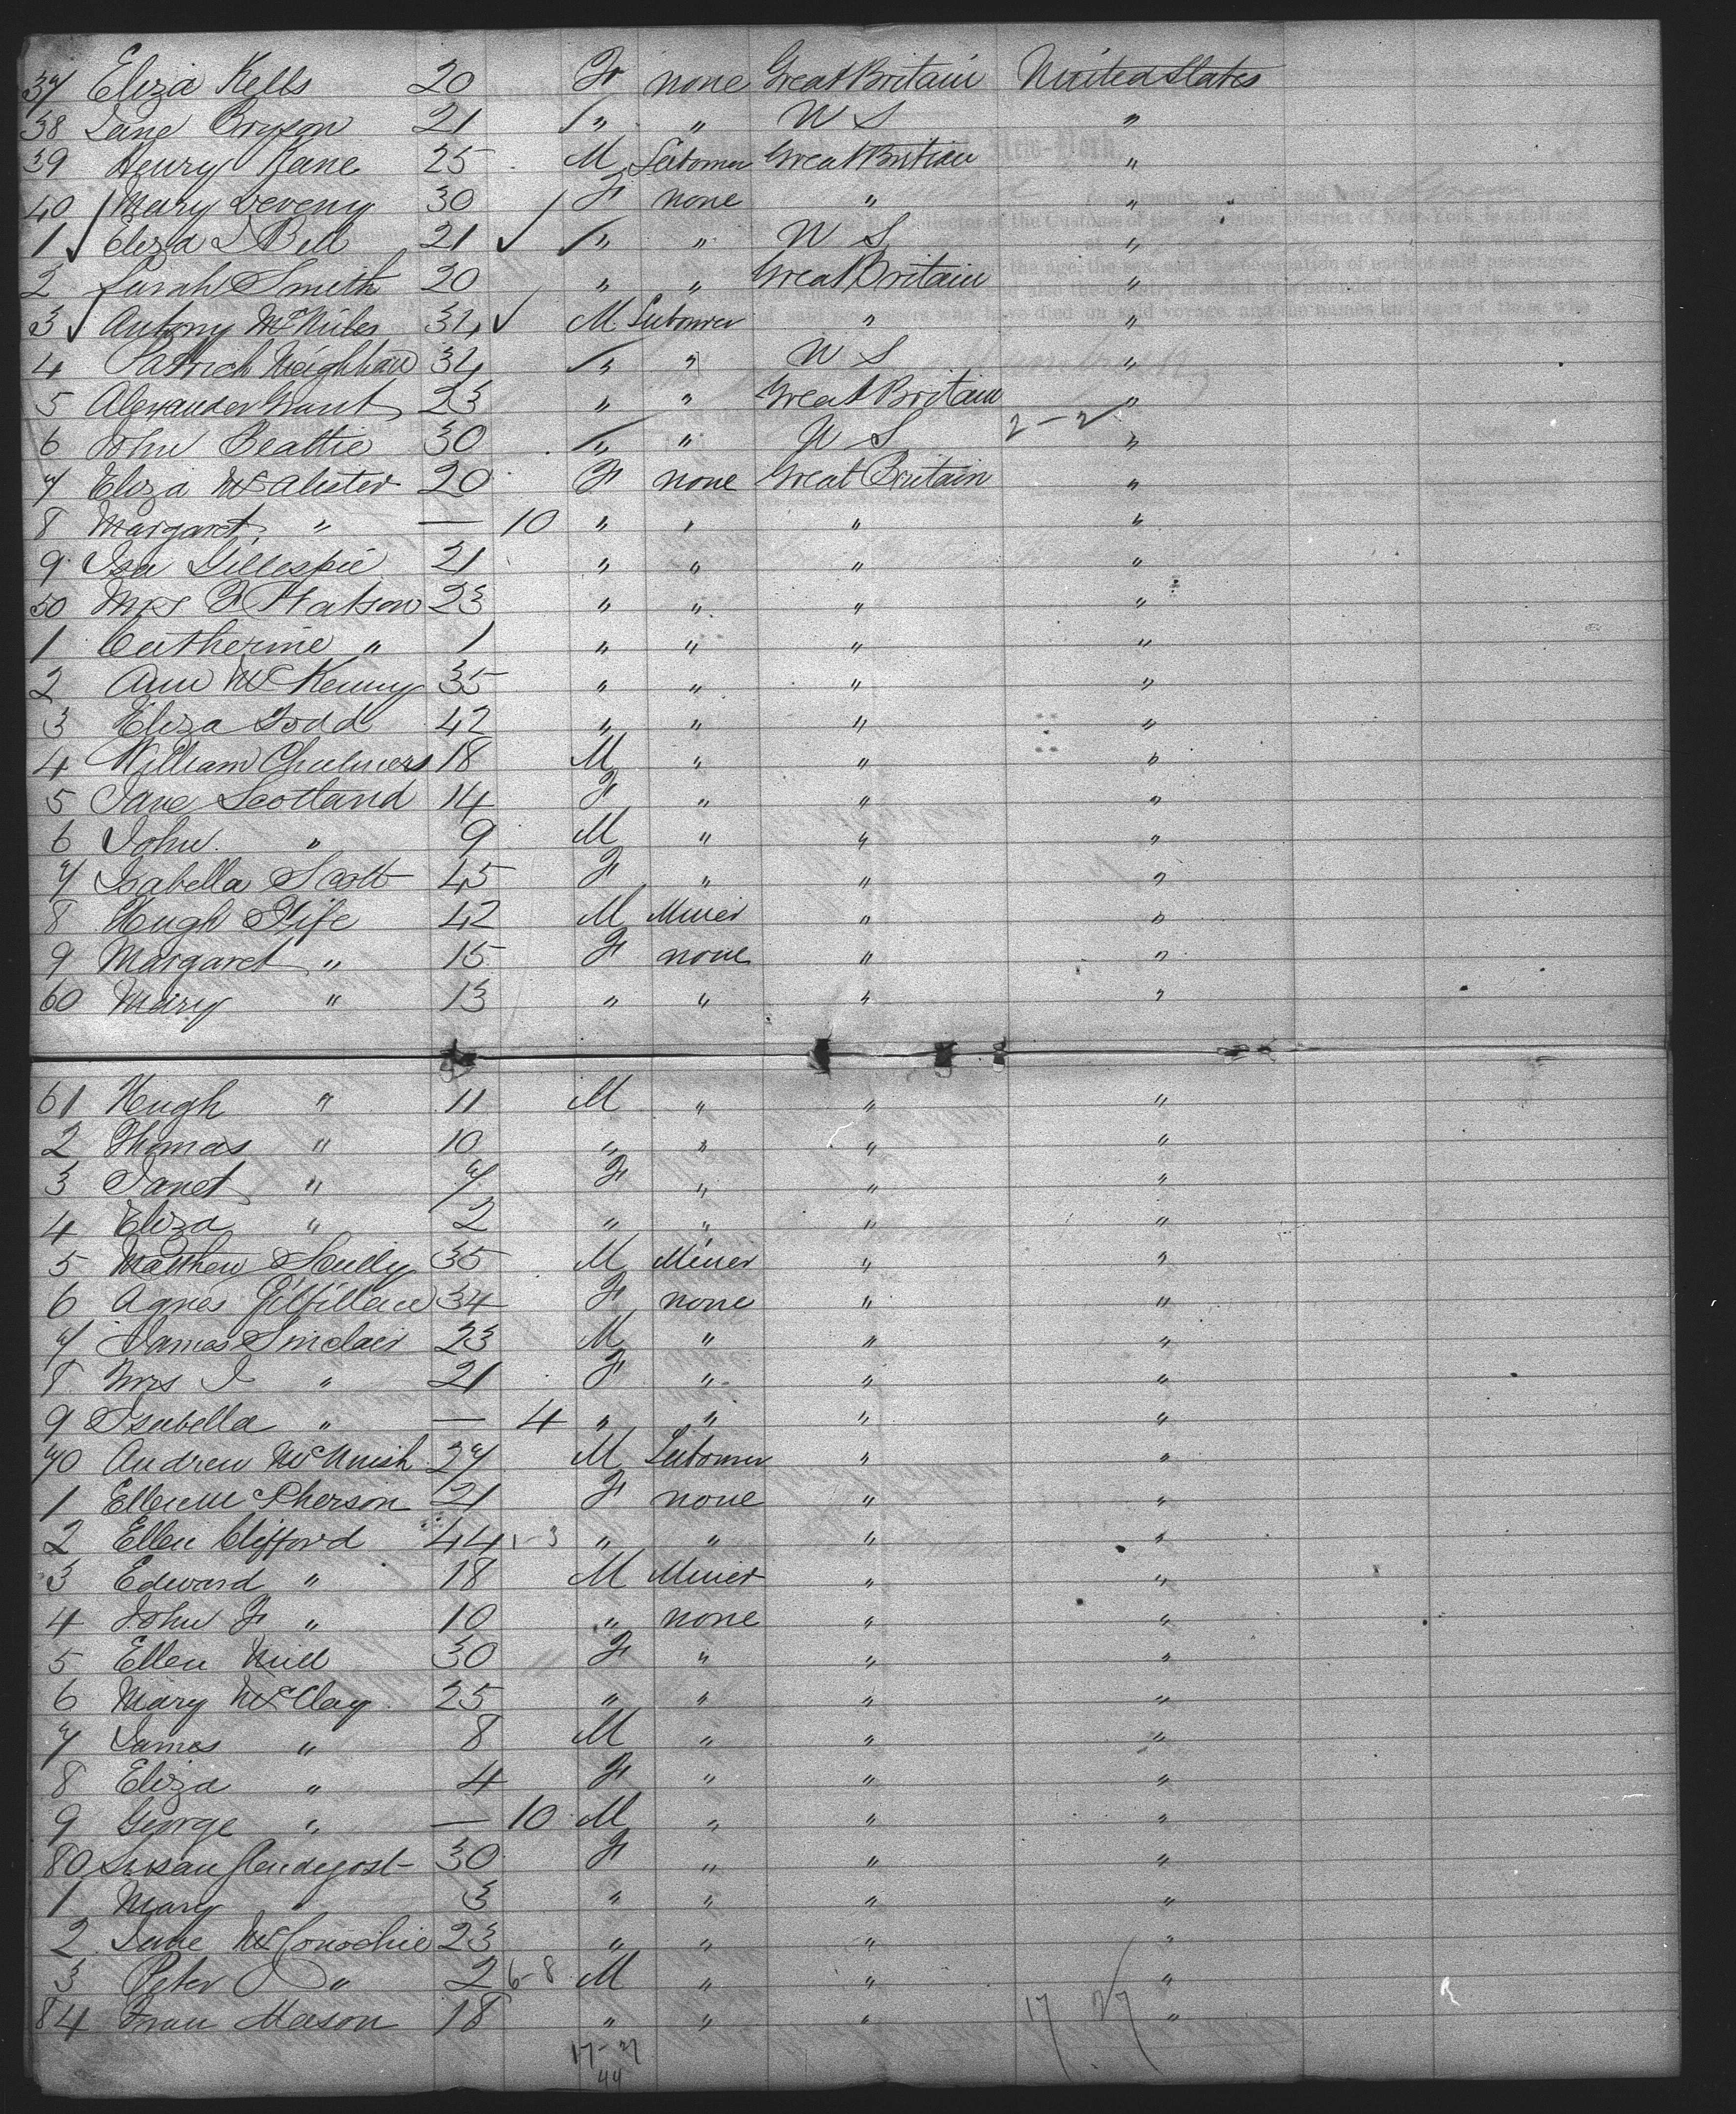 37 Eliza Kells 20 F none Great Britain United States
38 Jane Bryson 21 " " U S "
39 Henry Kane 25 M Labourer Great Britain "
40 Mary Deveny 30 F none " "
1 Eliza Bell 21 " " U S "
2 Sarah Smith 20 " " Great Britain "
3 Antony 34 M Labourer " "
4 Patrick 34 " " U S "
5 Alexander Grant 23 " " Great Britain "
6 John Beattie 30 " " U S 2-2 "
7 Eliza McAlister 20 F none Great Britain "
8 Margaret " — 10 " " " "
9 Isa Gillespie 21 " " " "
50 Mrs Watson 23 " " " "
1 Catherine " 1 " " " "
2 Ann McKenny 35 " " " "
3 Eliza Todd 42 " " " "
4 William Chalmers 18 M " " "
5 Jane Scotland 14 F " " "
6 John " 9 M " " "
7 Isabella Scott 45 F " " "
8 Hugh Fife 42 M Miner " "
9 Margaret " 15 F none " "
60 Mary " 13 " " " "
61 Hugh " 11 M " " "
2 Thomas " 10 " " " "
3 Janet " 7 F " " "
4 Eliza " 2 " " " "
5 Matthew Scully 35 M Miner " "
6 Agnes Gilfillan 34 F none " "
7 James Sinclair 23 M " " "
8 Mrs J " 21 F " " "
9 Isabella " — 4 " " " "
70 Andrew McNish 27 M Labourer " "
1 Ellen McPherson 21 F none " "
2 Ellen Clifford 44 1-3 " " " "
3 Edward " 18 M Miner " "
4 John F " 10 " none " "
5 Ellen Neill 30 F " " "
6 Mary McClay 25 " " " "
7 James " 8 M " " "
8 Eliza " 4 F " " "
9 George " — 10 M " " "
80 Susan 30 F " " "
1 Mary " 3 " " " "
2 Jane McConochie 23 " " " "
3 Peter " 2 6-8 M " " "
84 Mason 18 " " " 17 27 "
17-27
44